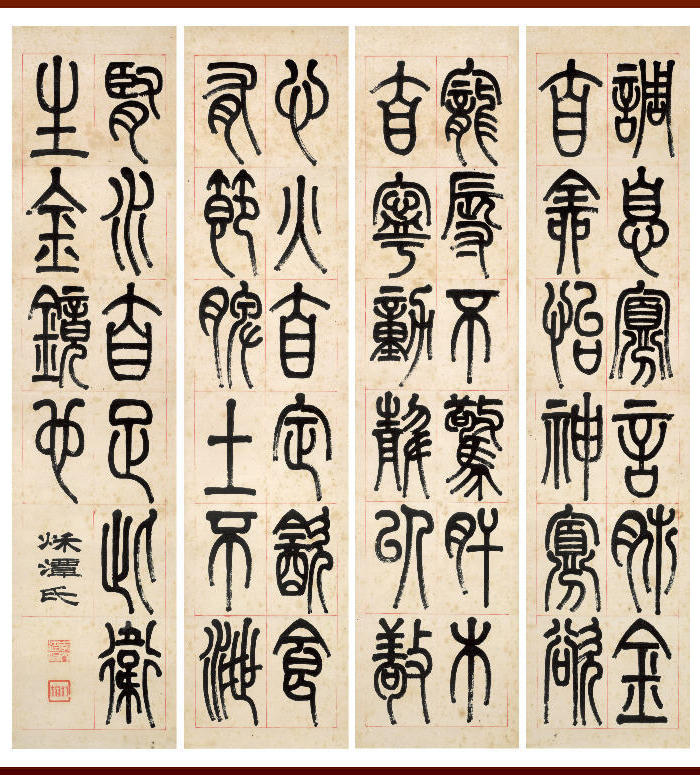 調息寡言肺金
自全怡神寡欲
寵辱不驚肝木
自寧動靜以敬
心火自定飲食
有節脾土不泄
腎水自足此衛
生金鏡也
秌潭氏